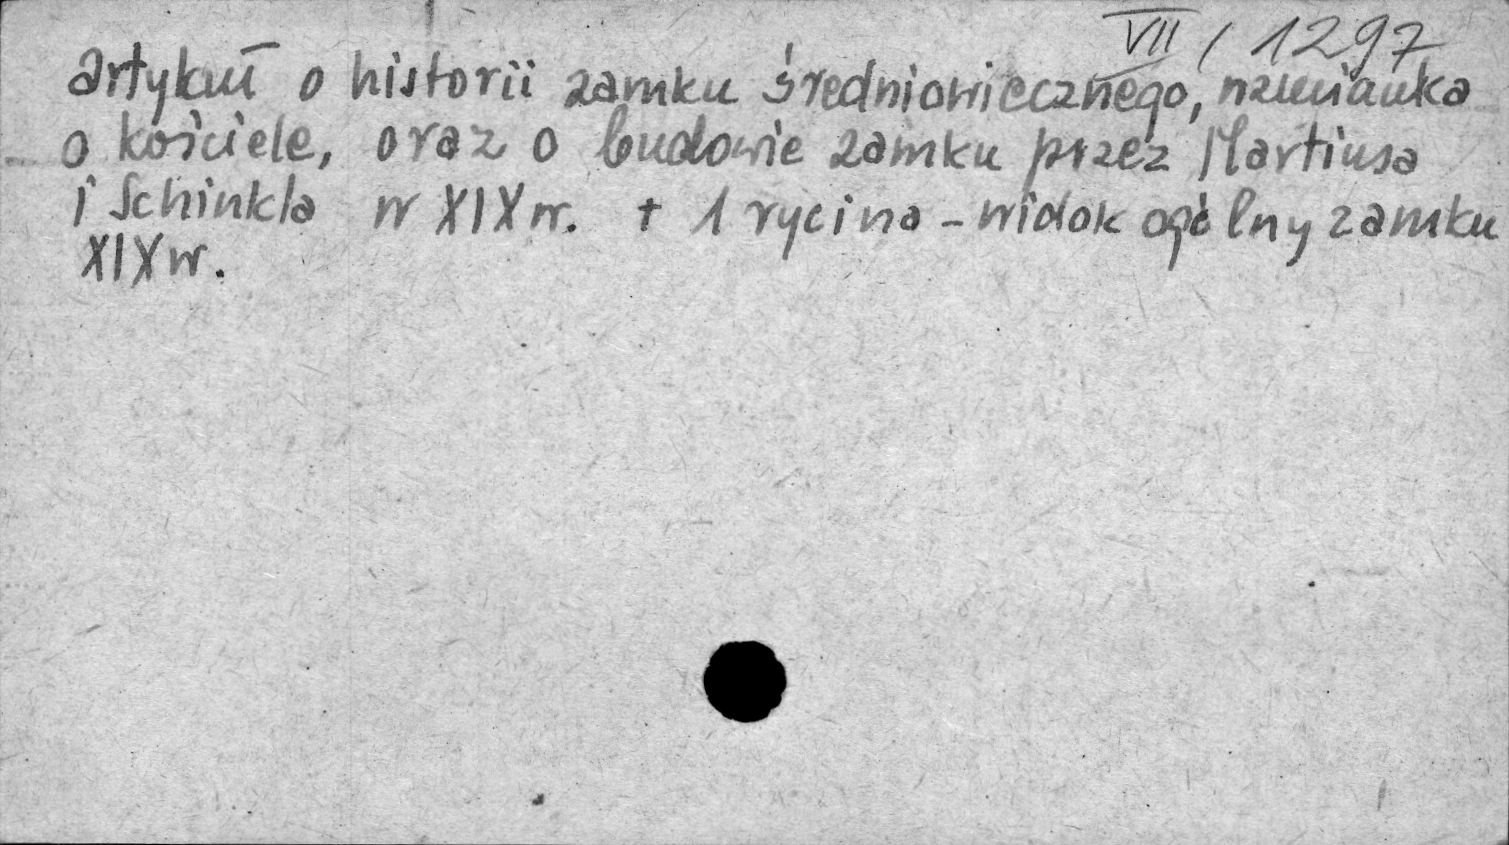 VII / 1297
artykuł o historii zamku średniowiecznego, wzmianka
o kościele, oraz o budowie zamku przez Martiusa
i Schinkla w XIX w. + 1 rycina - widok ogólny zamku
XIX w.